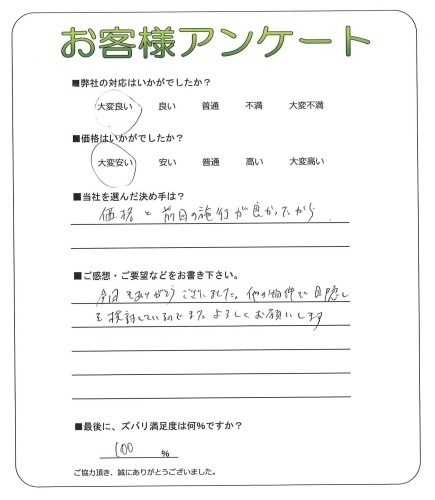 お客様アンケート
■弊社の対応はいかがでしたか？
大変良い 良い 普通 不満 大変不満
■価格はいかがでしたか？
大変安い 安い 普通 高い 大変高い
■当社を選んだ決め手は？
価格と前回の施行が良かったから
■ご感想・ご要望などをお書き下さい。
今回もありがとうございました。他の物件で目隠し
を検討しているのでまたよろしくお願いします
■最後に、ズバリ満足度は何％ですか？
100 ％
ご協力頂き、誠にありがとうございました。